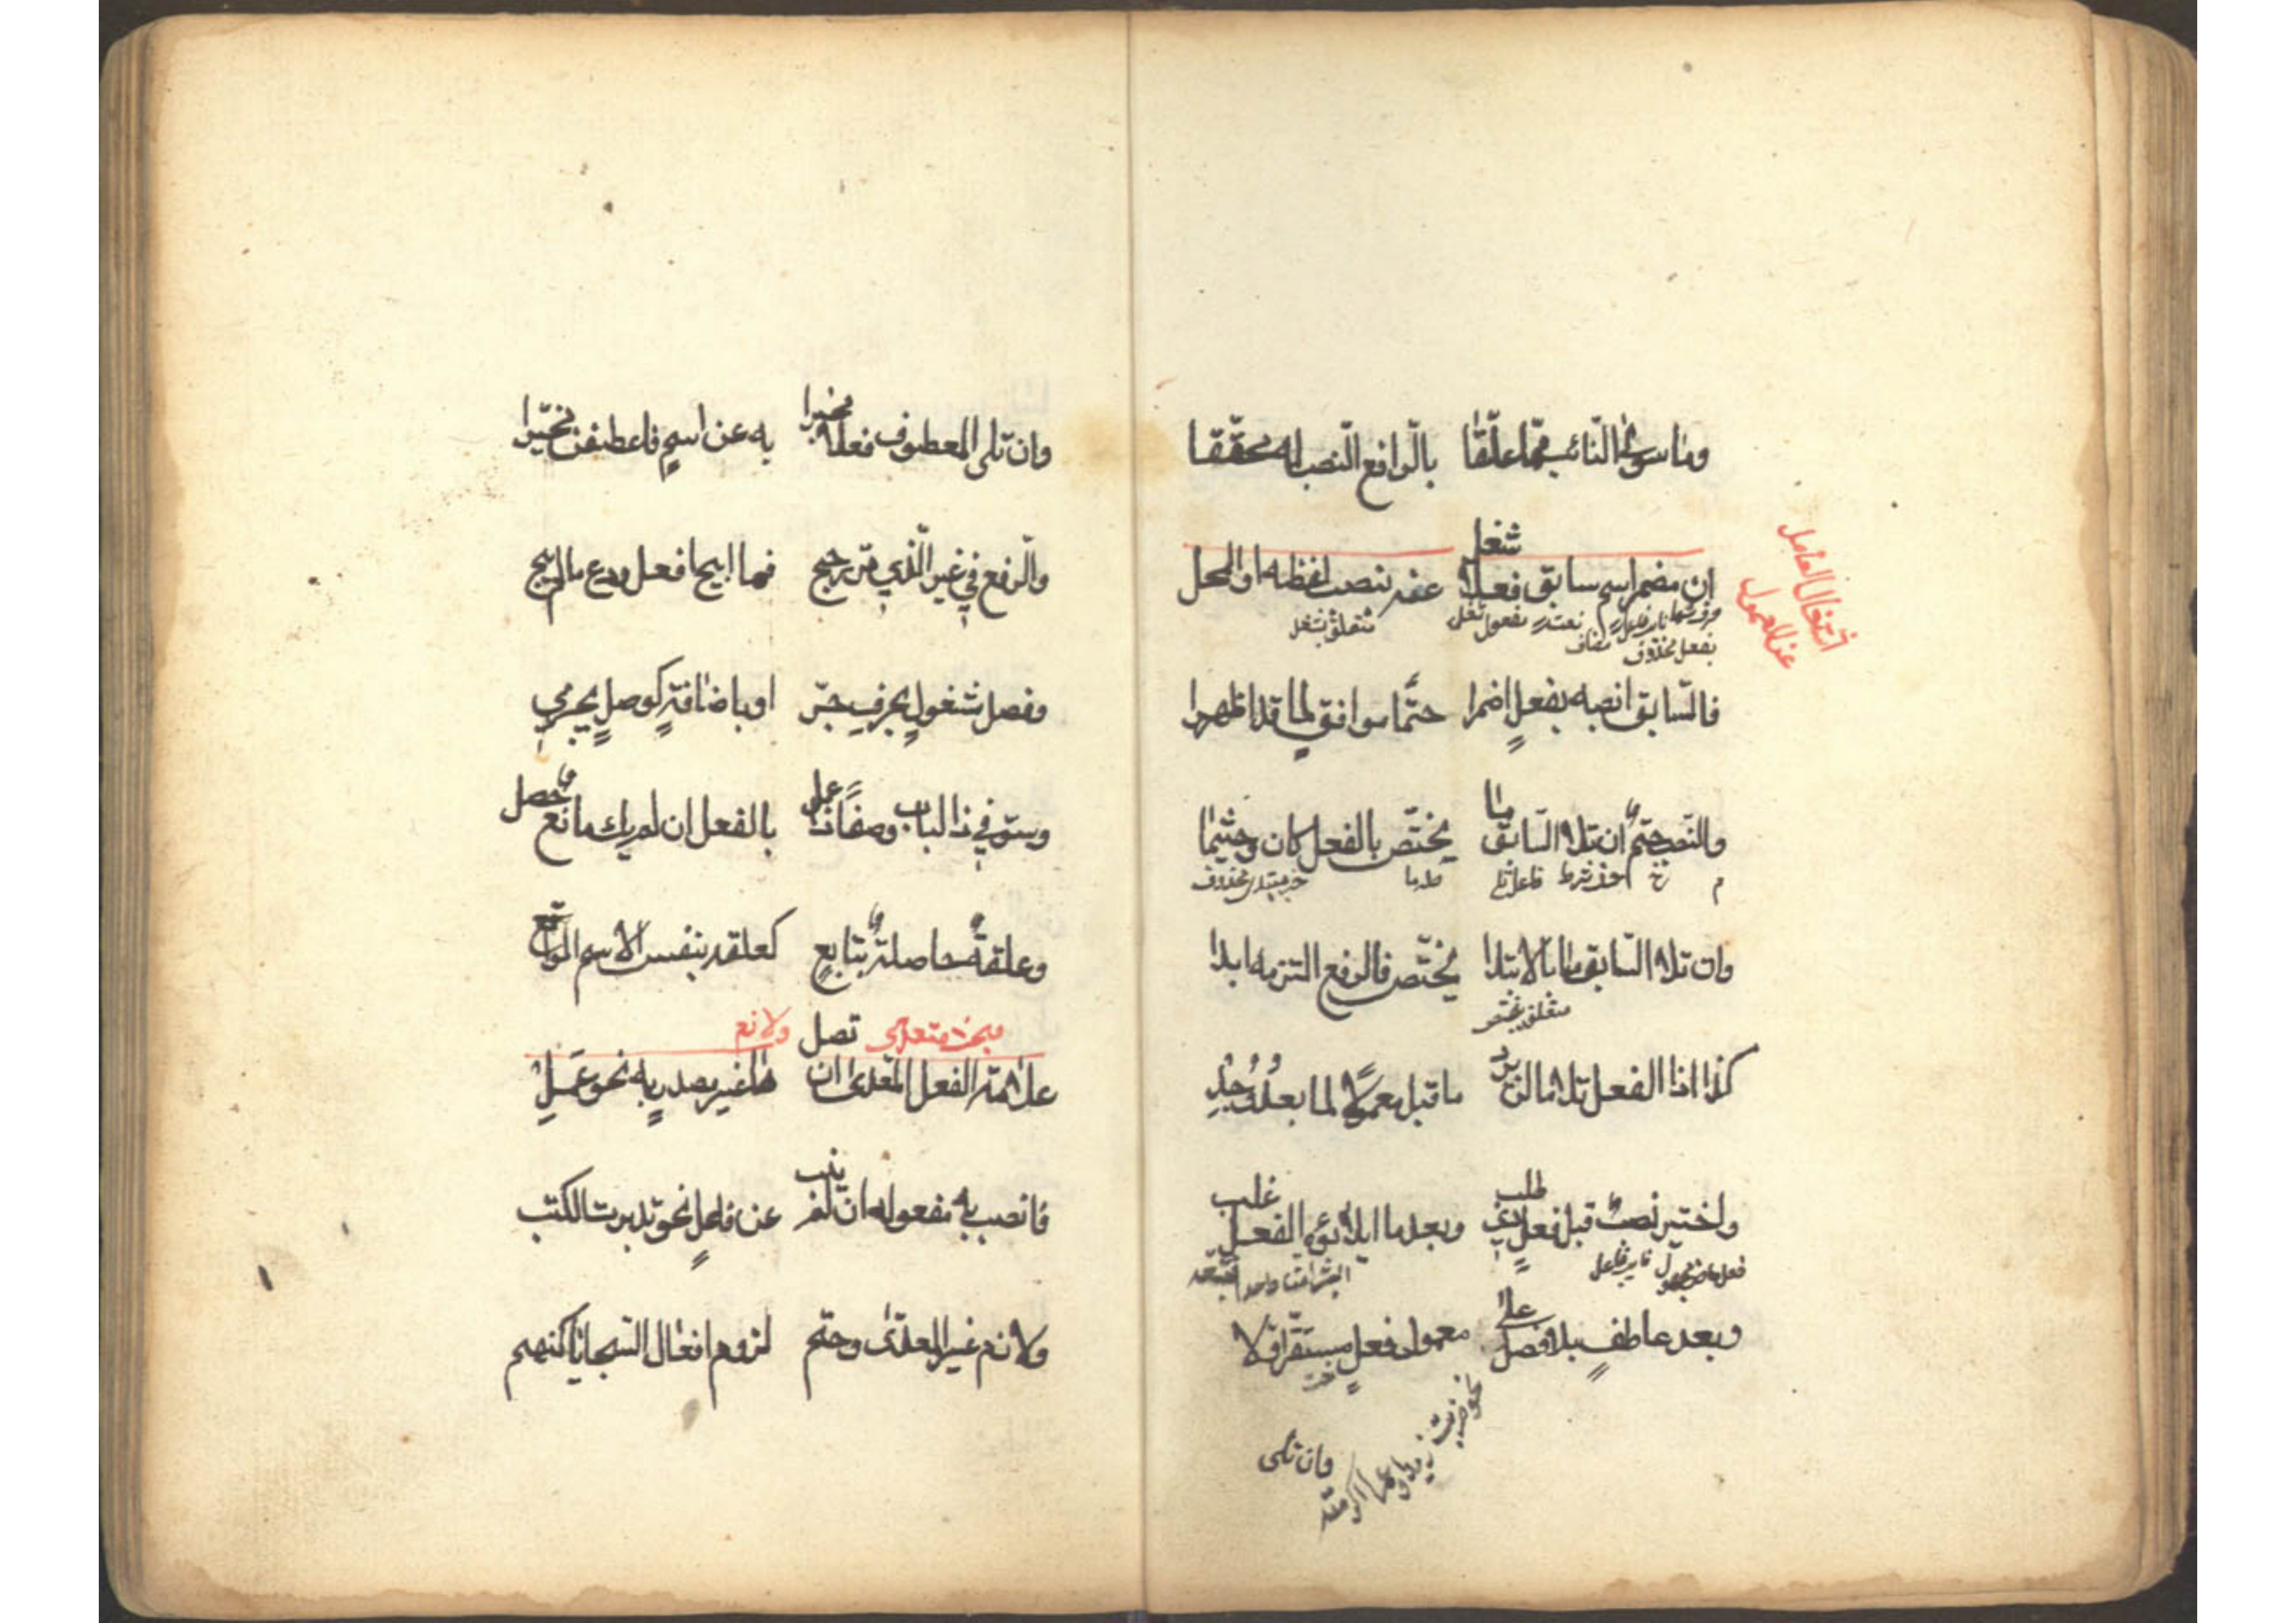 وما سوى النّائب ممّا علّقا بالرّافع النّصب له محقّقا
اشتغال العامل
عن المعمول
ان مضمر اسم سابق فعلا شغل عنه بنصب لفظه او المحل
نايب فاعل مفعول شغل متعلق بشغل
بفعل محذوف مضاف
فالسّابق انصبه بفعلٍ اضمرا حتمًا موافقٍ لما قد اظهرا
والنّصب حتمٌ ان تلا السّابق ما يختصّ بالفعل كان وحيثما
م خ حرف شرط فاعل تلا صله ما خبر مبتداء محذوف
وان تلا السّابق ما بالابتدا يختصّ فالرفع التزمه ابدا
متعلق بيختص
كذا اذا الفعل تلا ما لن يرد ما قبل معمولاً لما بعدُ وُجِد
واختير نصبٌ قبل فعلٍ ذي طلب وبعد ما ايلاؤه الفعل غلب
فعل ماض مجهول نايب فاعل
وبعد عاطفٍ بلا فصل على معمول فعلٍ مستقرّ اوّلا
نحو ضربت زيدا وعمرا اكرمته
وان تلى
وان تلى المعطوف فعلا مخبرا به عن اسمٍ فاعطفن مخيّرا
والرّفع في غير الّذي مرّ رجح فما ابيح افعل ودع ما لم يبح
وفصل مشغولٍ بحرفِ جرّ او باضافةٍ كوصلٍ يجري
وسوّ في ذا الباب وصفًا ذا عملٍ بالفعل ان لم يك مانعٌ حصل
وعلقةٌ حاصلةٌ بتابعٍ كعلقة بنفس الاسم الواقع
مبحث متعدى ولازم
علامة الفعل المعدّى ان تصل ها غير مصدرٍ به نحو عَمِل
فانصب به مفعوله ان لم ينب عن فاعلٍ نحو تدبرت الكتب
ولازم غير المعدّى وحتم لزوم افعال السّجايا كنهم